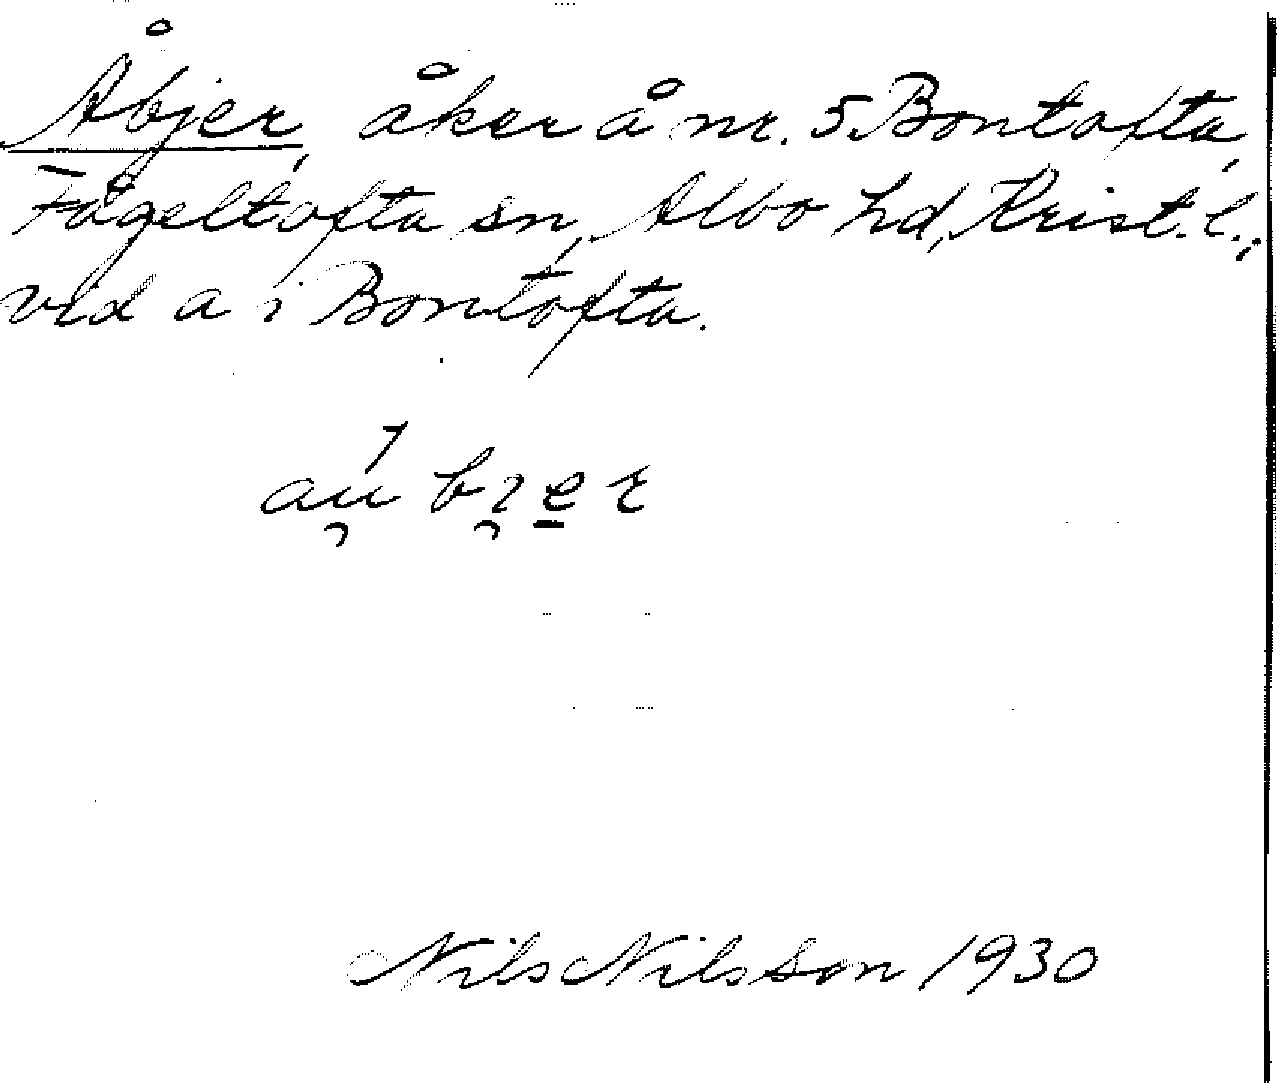 Åbjer, åker å nr. 5 Bontofta,
Fågeltofta sn, Albo hd, Krist. l.,
vid a i Bontofta.
Nils Nilsson 1930